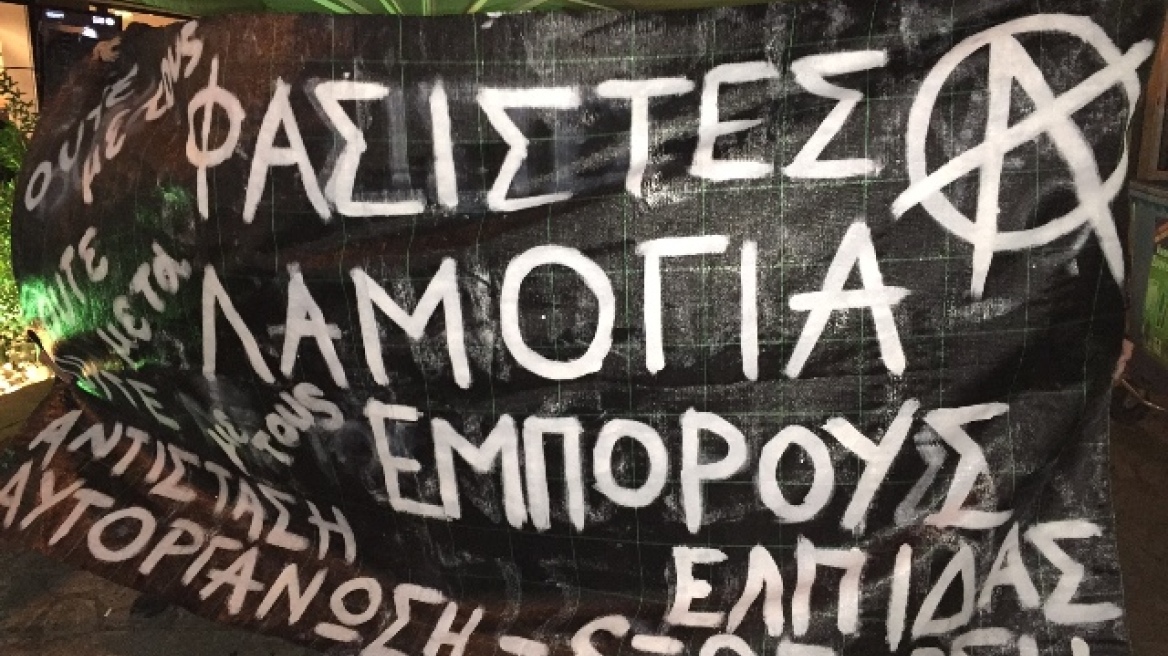 ΟΥΤΕ ΜΕ ΤΟΥΣ ΦΑΣΙΣΤΕΣ
ΟΥΤΕ ΜΕ ΤΑ ΛΑΜΟΓΙΑ
ΟΥΤΕ ΜΕ ΤΟΥΣ ΕΜΠΟΡΟΥΣ
ΕΛΠΙΔΑΣ
ΑΝΤΙΣΤΑΣΗ
ΑΥΤΟΡΓΑΝΩΣΗ -